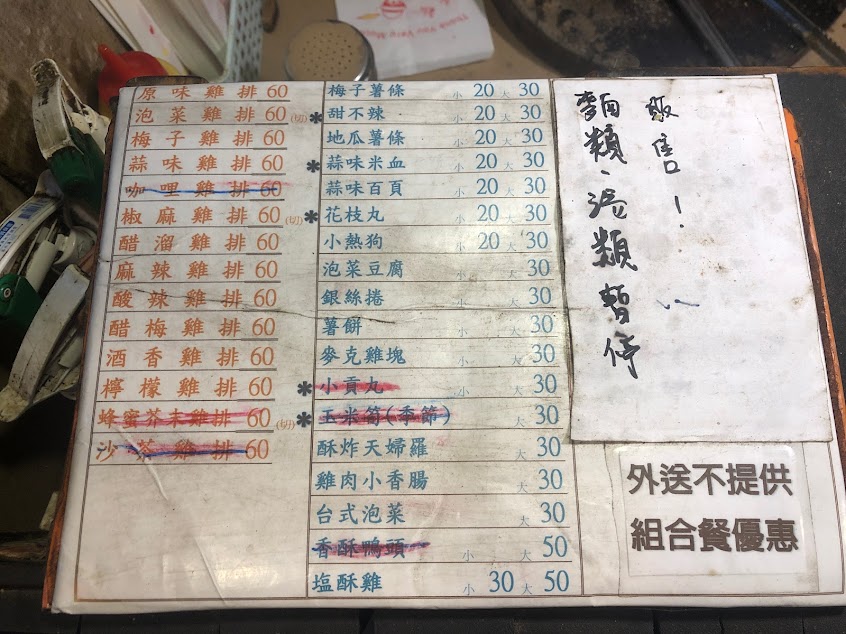 原味雞排60
泡菜雞排60(切)
梅子雞排60
蒜味雞排60
咖哩雞排60
椒麻雞排60(切)
醋溜雞排60
麻辣雞排60
酸辣雞排60
醋梅雞排60
酒香雞排60
檸檬雞排60
蜂蜜芥末雞排60(切)
沙茶雞排60
梅子薯條 小20大30
*甜不辣 小20大30
地瓜薯條 小20大30
*蒜味米血 小20大30
蒜味百頁 小20大30
*花枝丸 小20大30
小熱狗 小20大30
泡菜豆腐 小 大30
銀絲捲 小 大30
薯餅 小 大30
麥克雞塊 小 大30
*小貢丸 小 大30
*玉米筍(季節) 大30
酥炸天婦羅 大30
雞肉小香腸 大30
台式泡菜 大30
香酥鴨頭 小 大50
塩酥雞 小30大50
麵類、湯類暫停
販售!
外送不提供
組合餐優惠